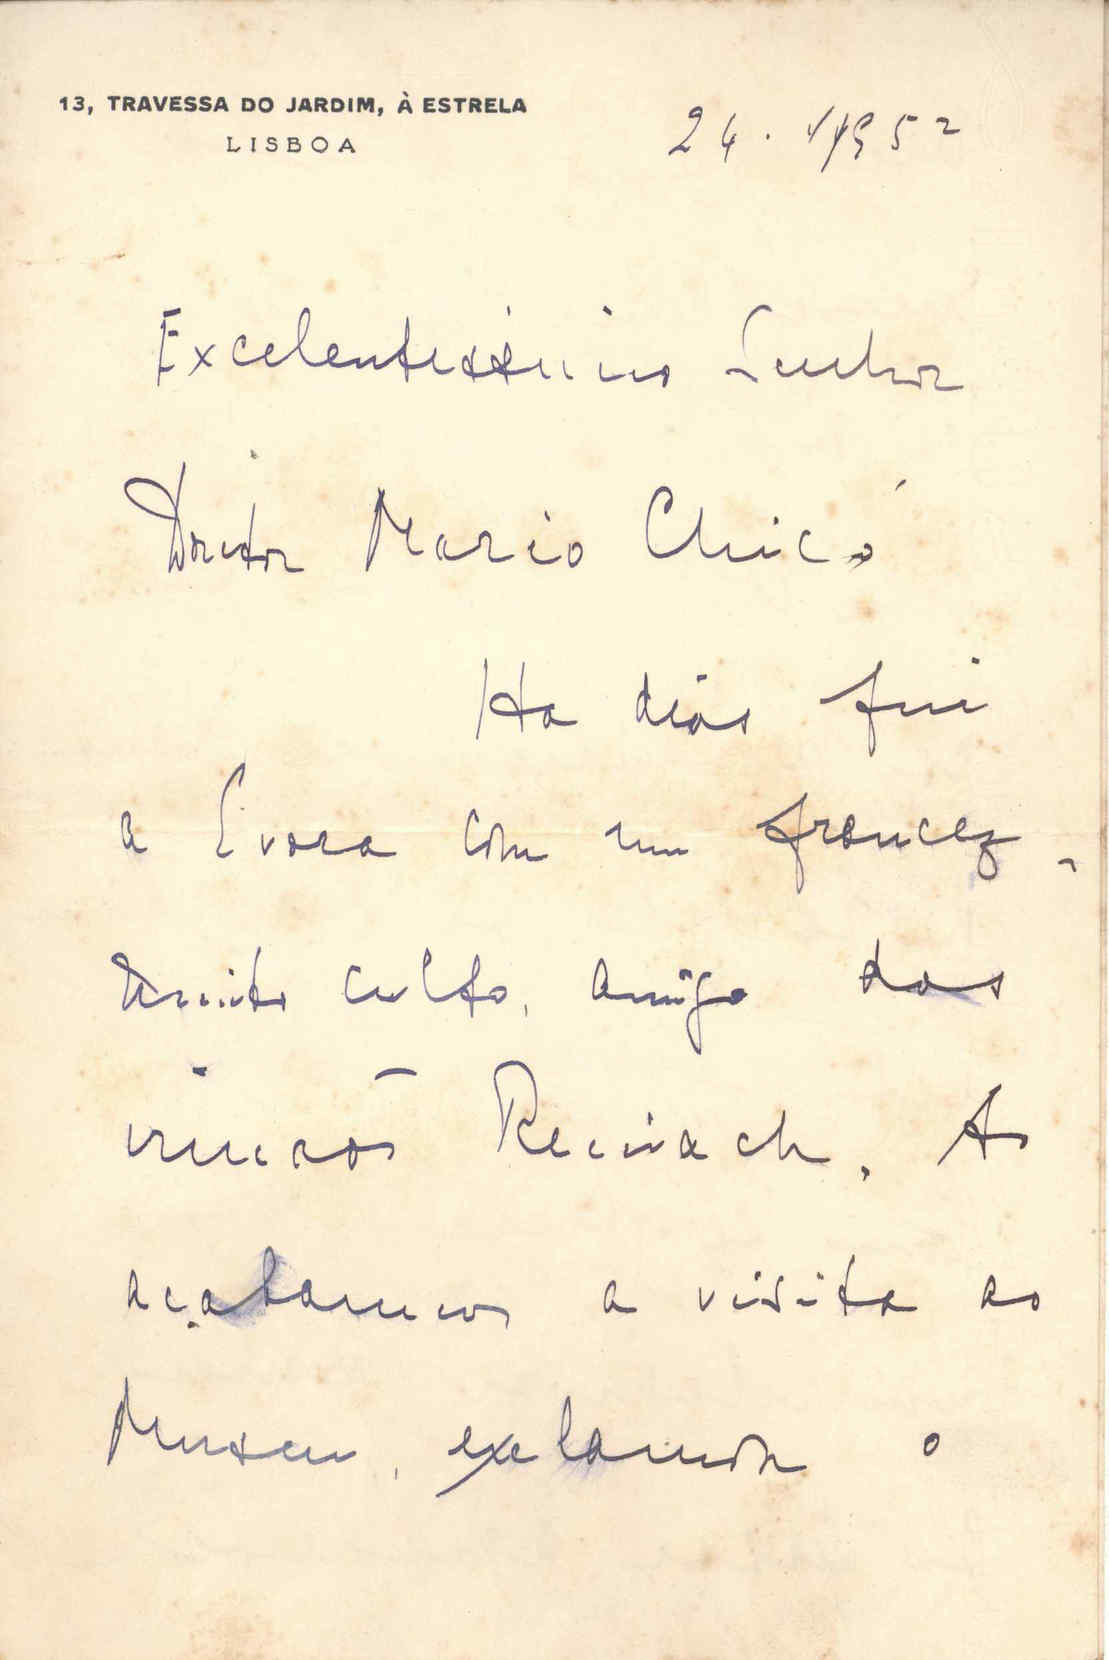 13, TRAVESSA DO JARDIM, À ESTRELA
LISBOA
24. 1952
Excelentissimo Senhor
Doutor Mario Chicó
Ha dias fui
a Evora com um francez
muito culto, amigo dos
irmãos Reinach. Ao
acabarmos a visita ao
Museu, exclamou o